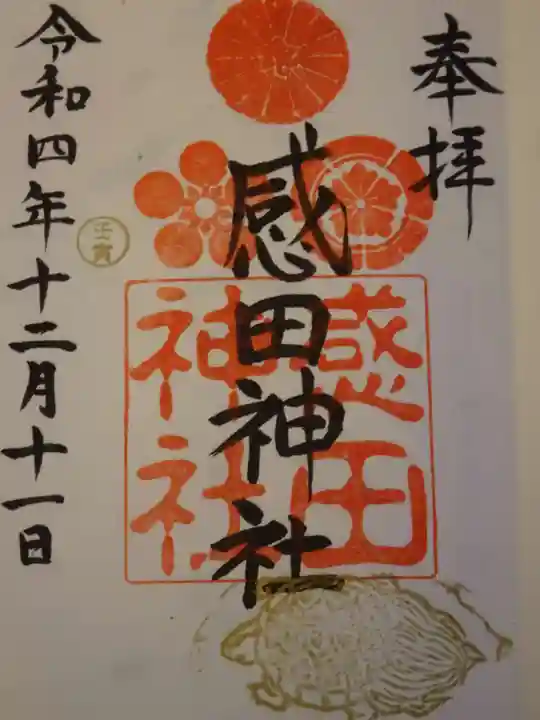 奉拝
感田神社
感田
神社
令和四年十二月十一日
壬寅